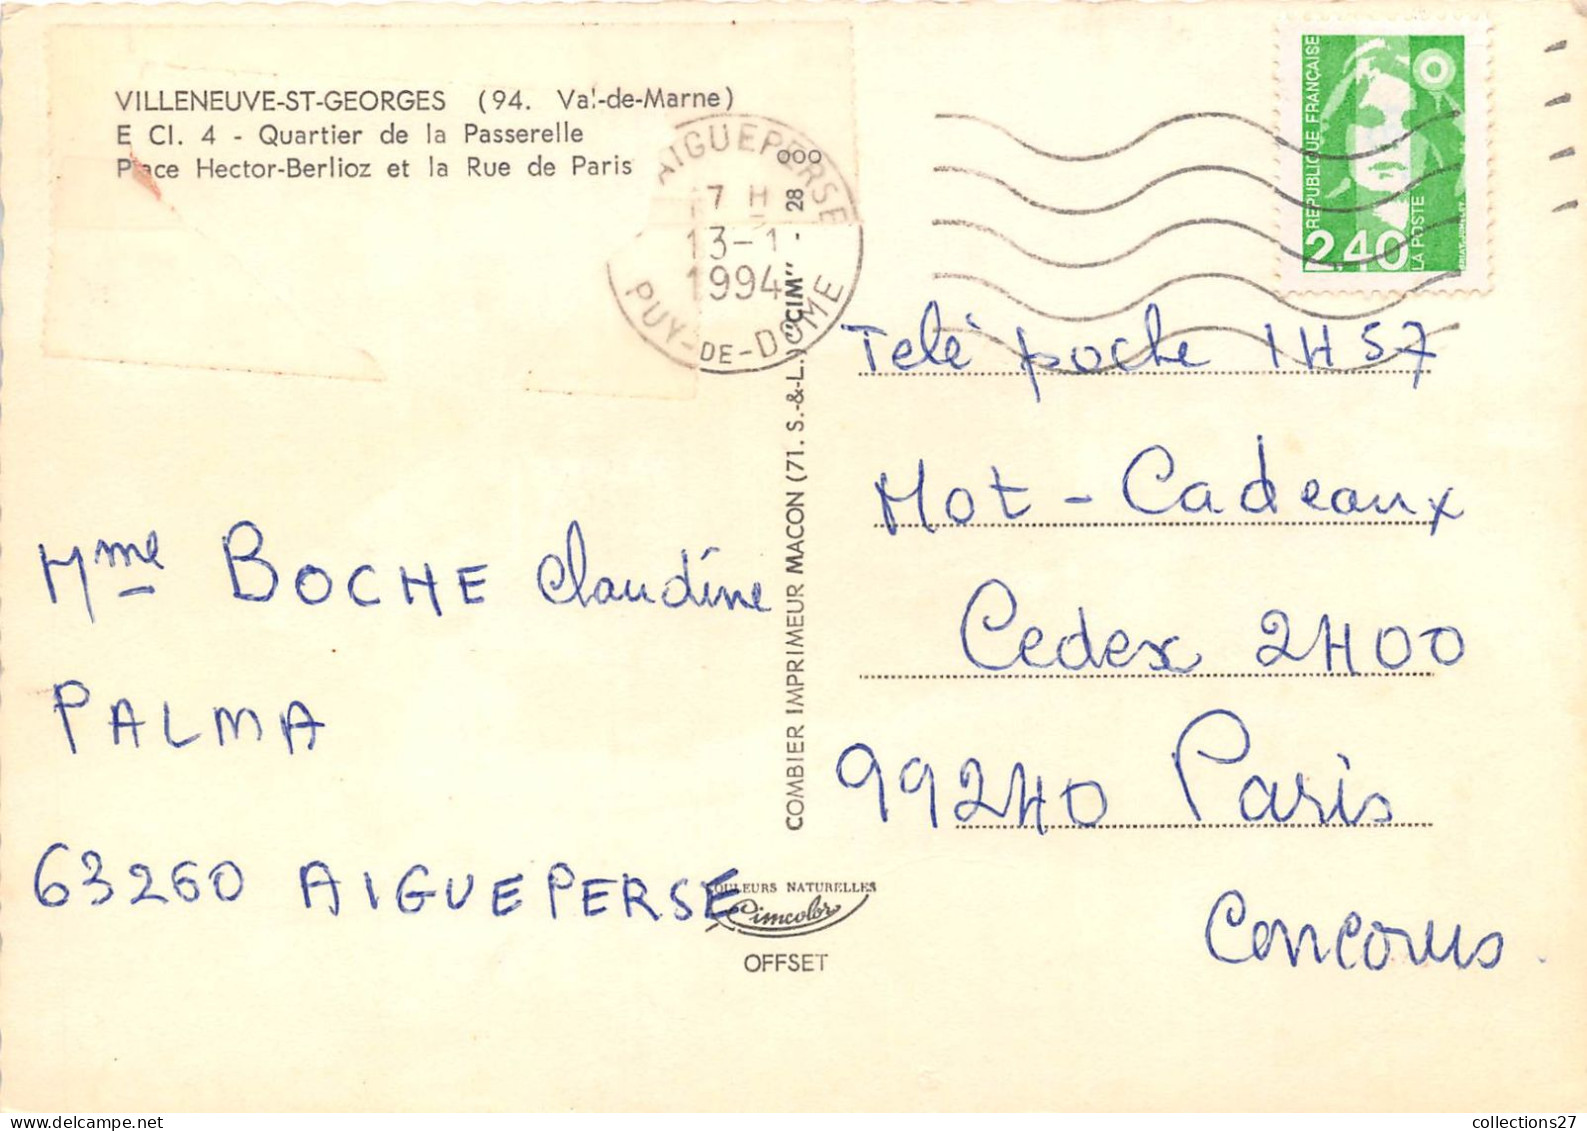 VILLENEUVE-ST-GEORGES (94. Val-de-Marne)
E Cl. 4 - Quartier de la Passerelle
Place Hector-Berlioz et la Rue de Paris
AIGUEPERSE
17 H
13-1
1994
PUY-DE-DOME
RÉPUBLIQUE FRANÇAISE
2,40
LA POSTE
COMBIER IMPRIMEUR MACON (71. S.-&-L.) "CIM" - 28 000
Télé poche 1H57
Mot-Cadeaux
Cedex 2H00
992H0 Paris
Concours
Mme BOCHE Claudine
PALMA
63260 AIGUEPERSE
COULEURS NATURELLES
Cimcolor
OFFSET
collections27